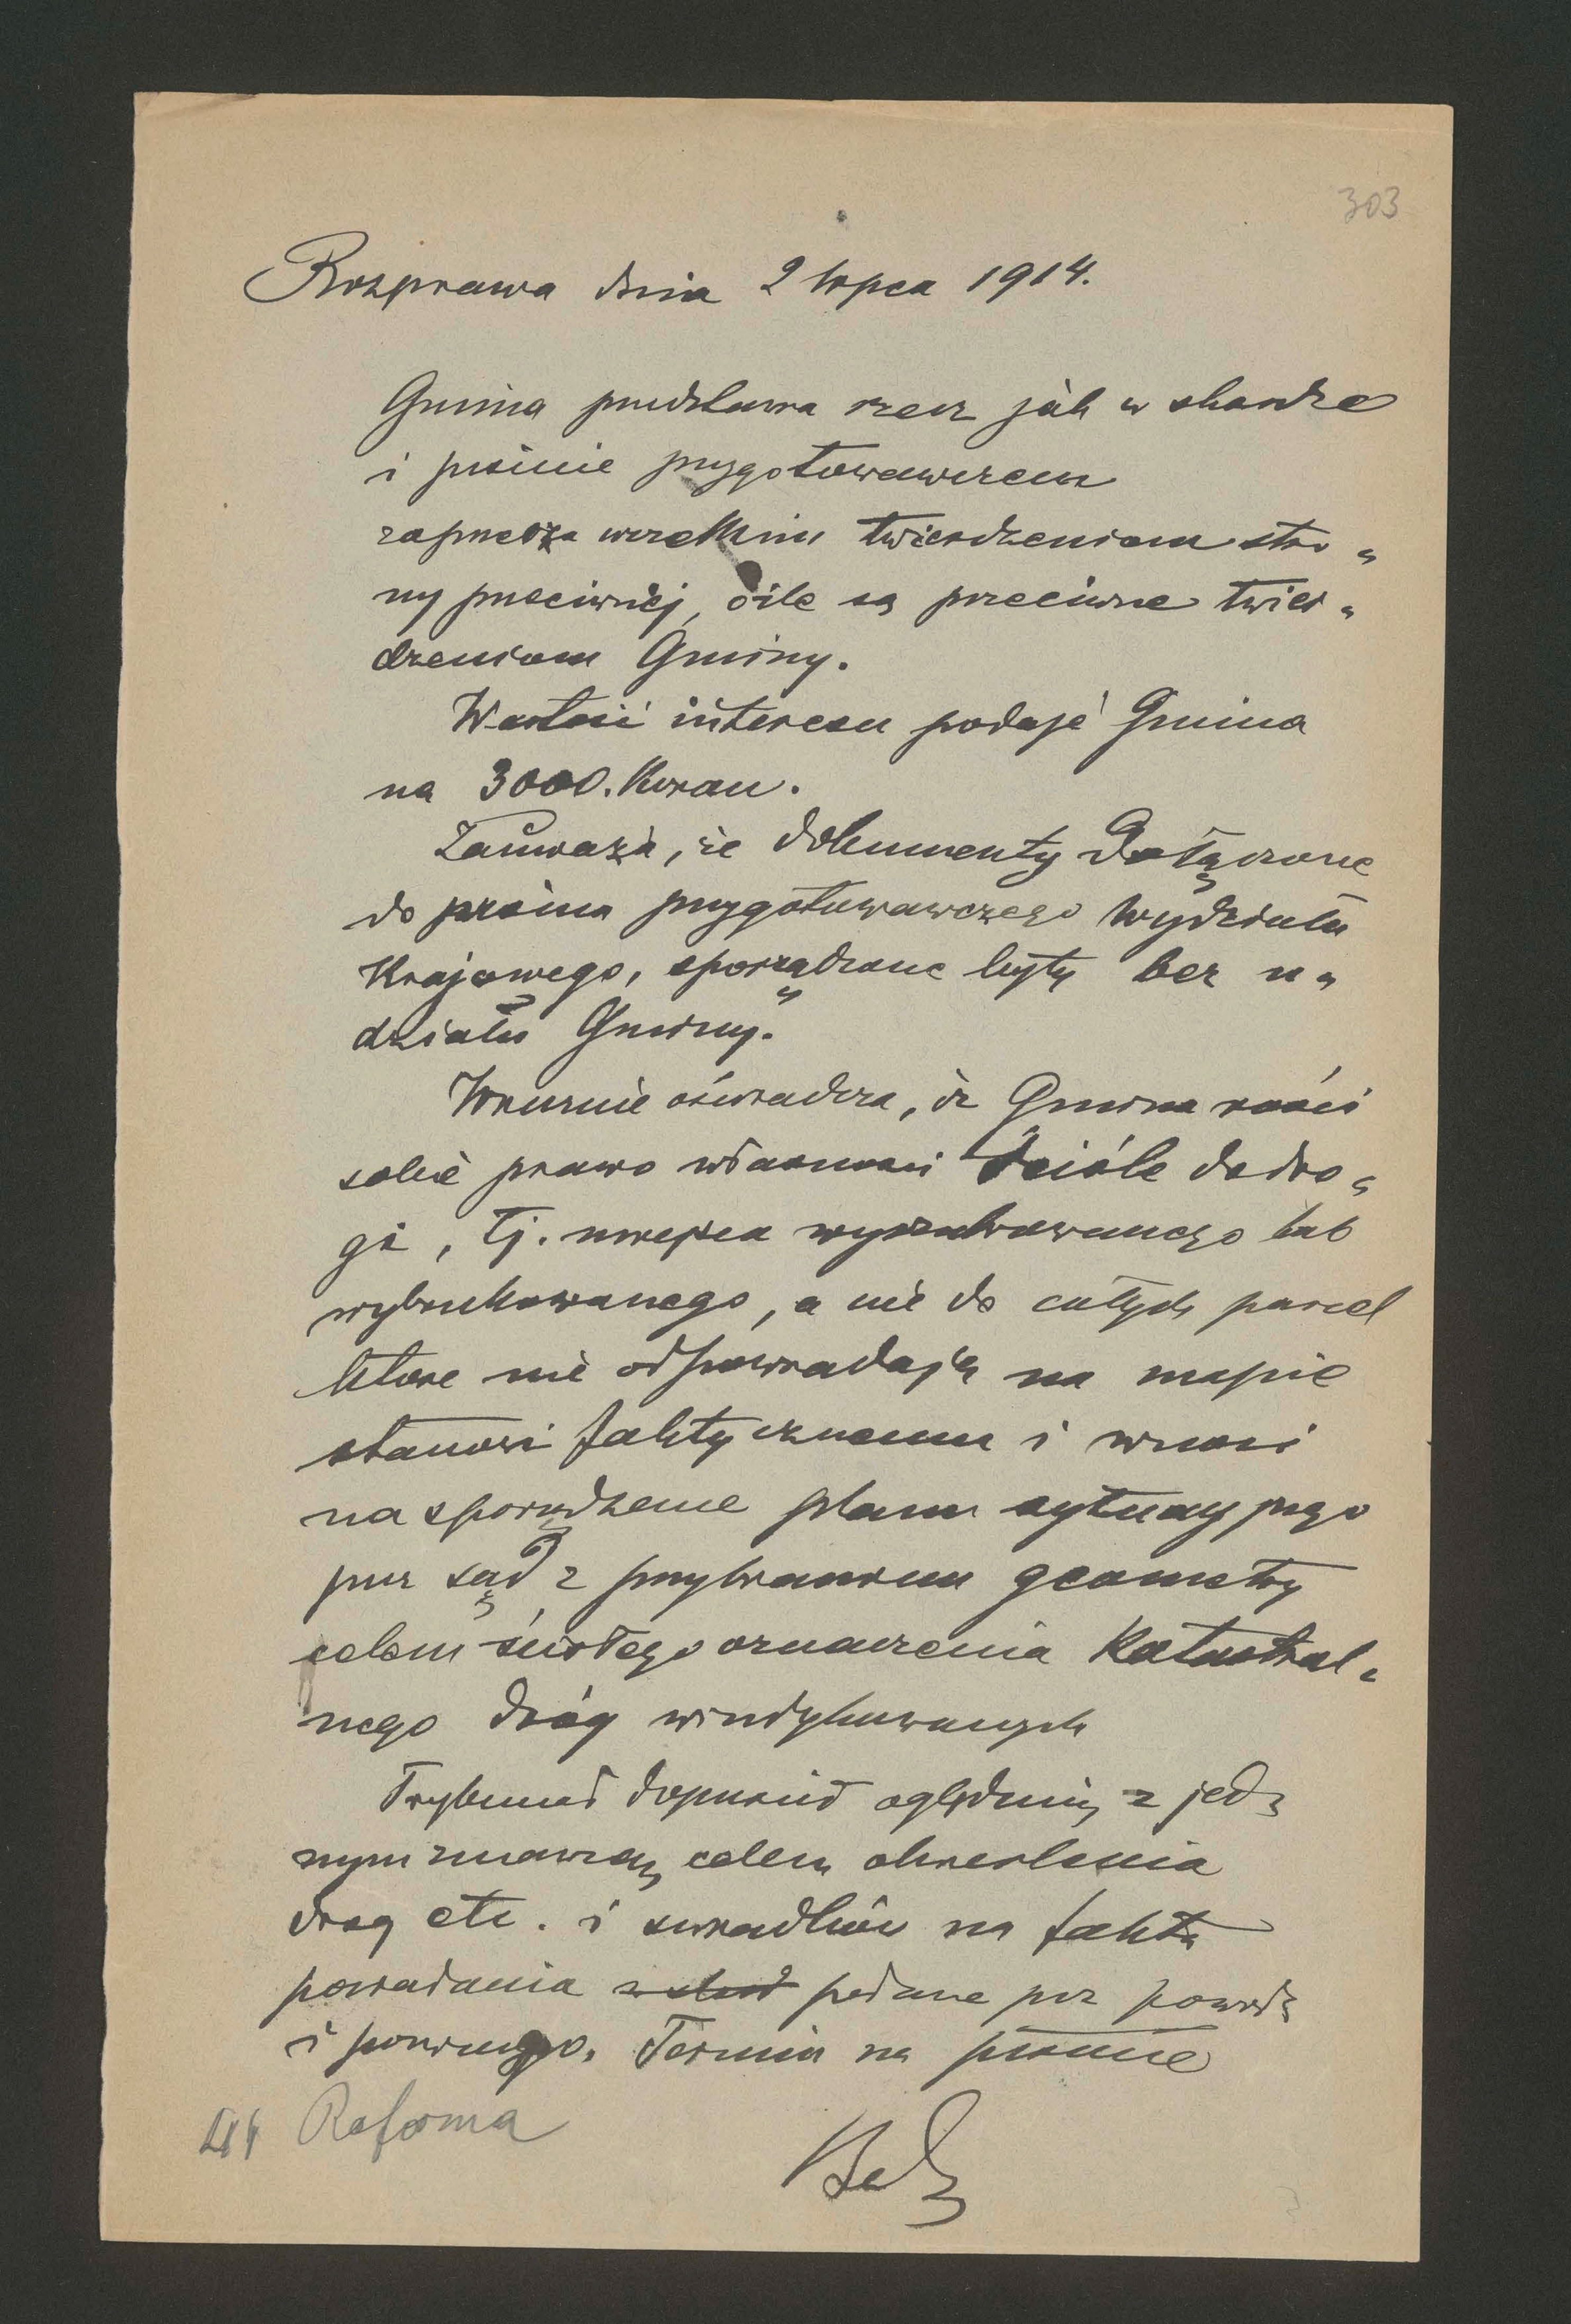 303
Rozprawa dnia 2 lipca 1914.
Gmina przedstawia rzecz jak w skardze
i piśmie przygotowawczem
zaprzecza wszelkim twierdzeniom stro-
ny przeciwnej, o ile są przeciwne twier-
dzeniom Gminy.
Wartość interesu podaje Gmina
na 3000. Koron.
Zauważa, że dokumenty dołączone
do pisma przygotowawczego Wydziału
Krajowego, sporządzone były bez u-
działu Gminy.
Wreszcie oświadcza, iż Gmina rości
sobie prawo własności ściśle do dro-
gi, tj. miejsca wyszutrowanego lub
wybrukowanego, a nie do całych parcel
które nie odpowiadają na mapie
stanowi faktycznemu i wnosi
na sporządzenie planu sytuacyjnego
przez sąd z przybraniem geometry
celem ścisłego oznaczenia katastral-
nego dróg windykowanych
Trybunał dopuścił oględziny z jed-
nym znawcą celem określenia
dróg etc. i świadków na fakta
posiadania podane prz powoda
i pozwanego. Termin na piśmie
Reforma